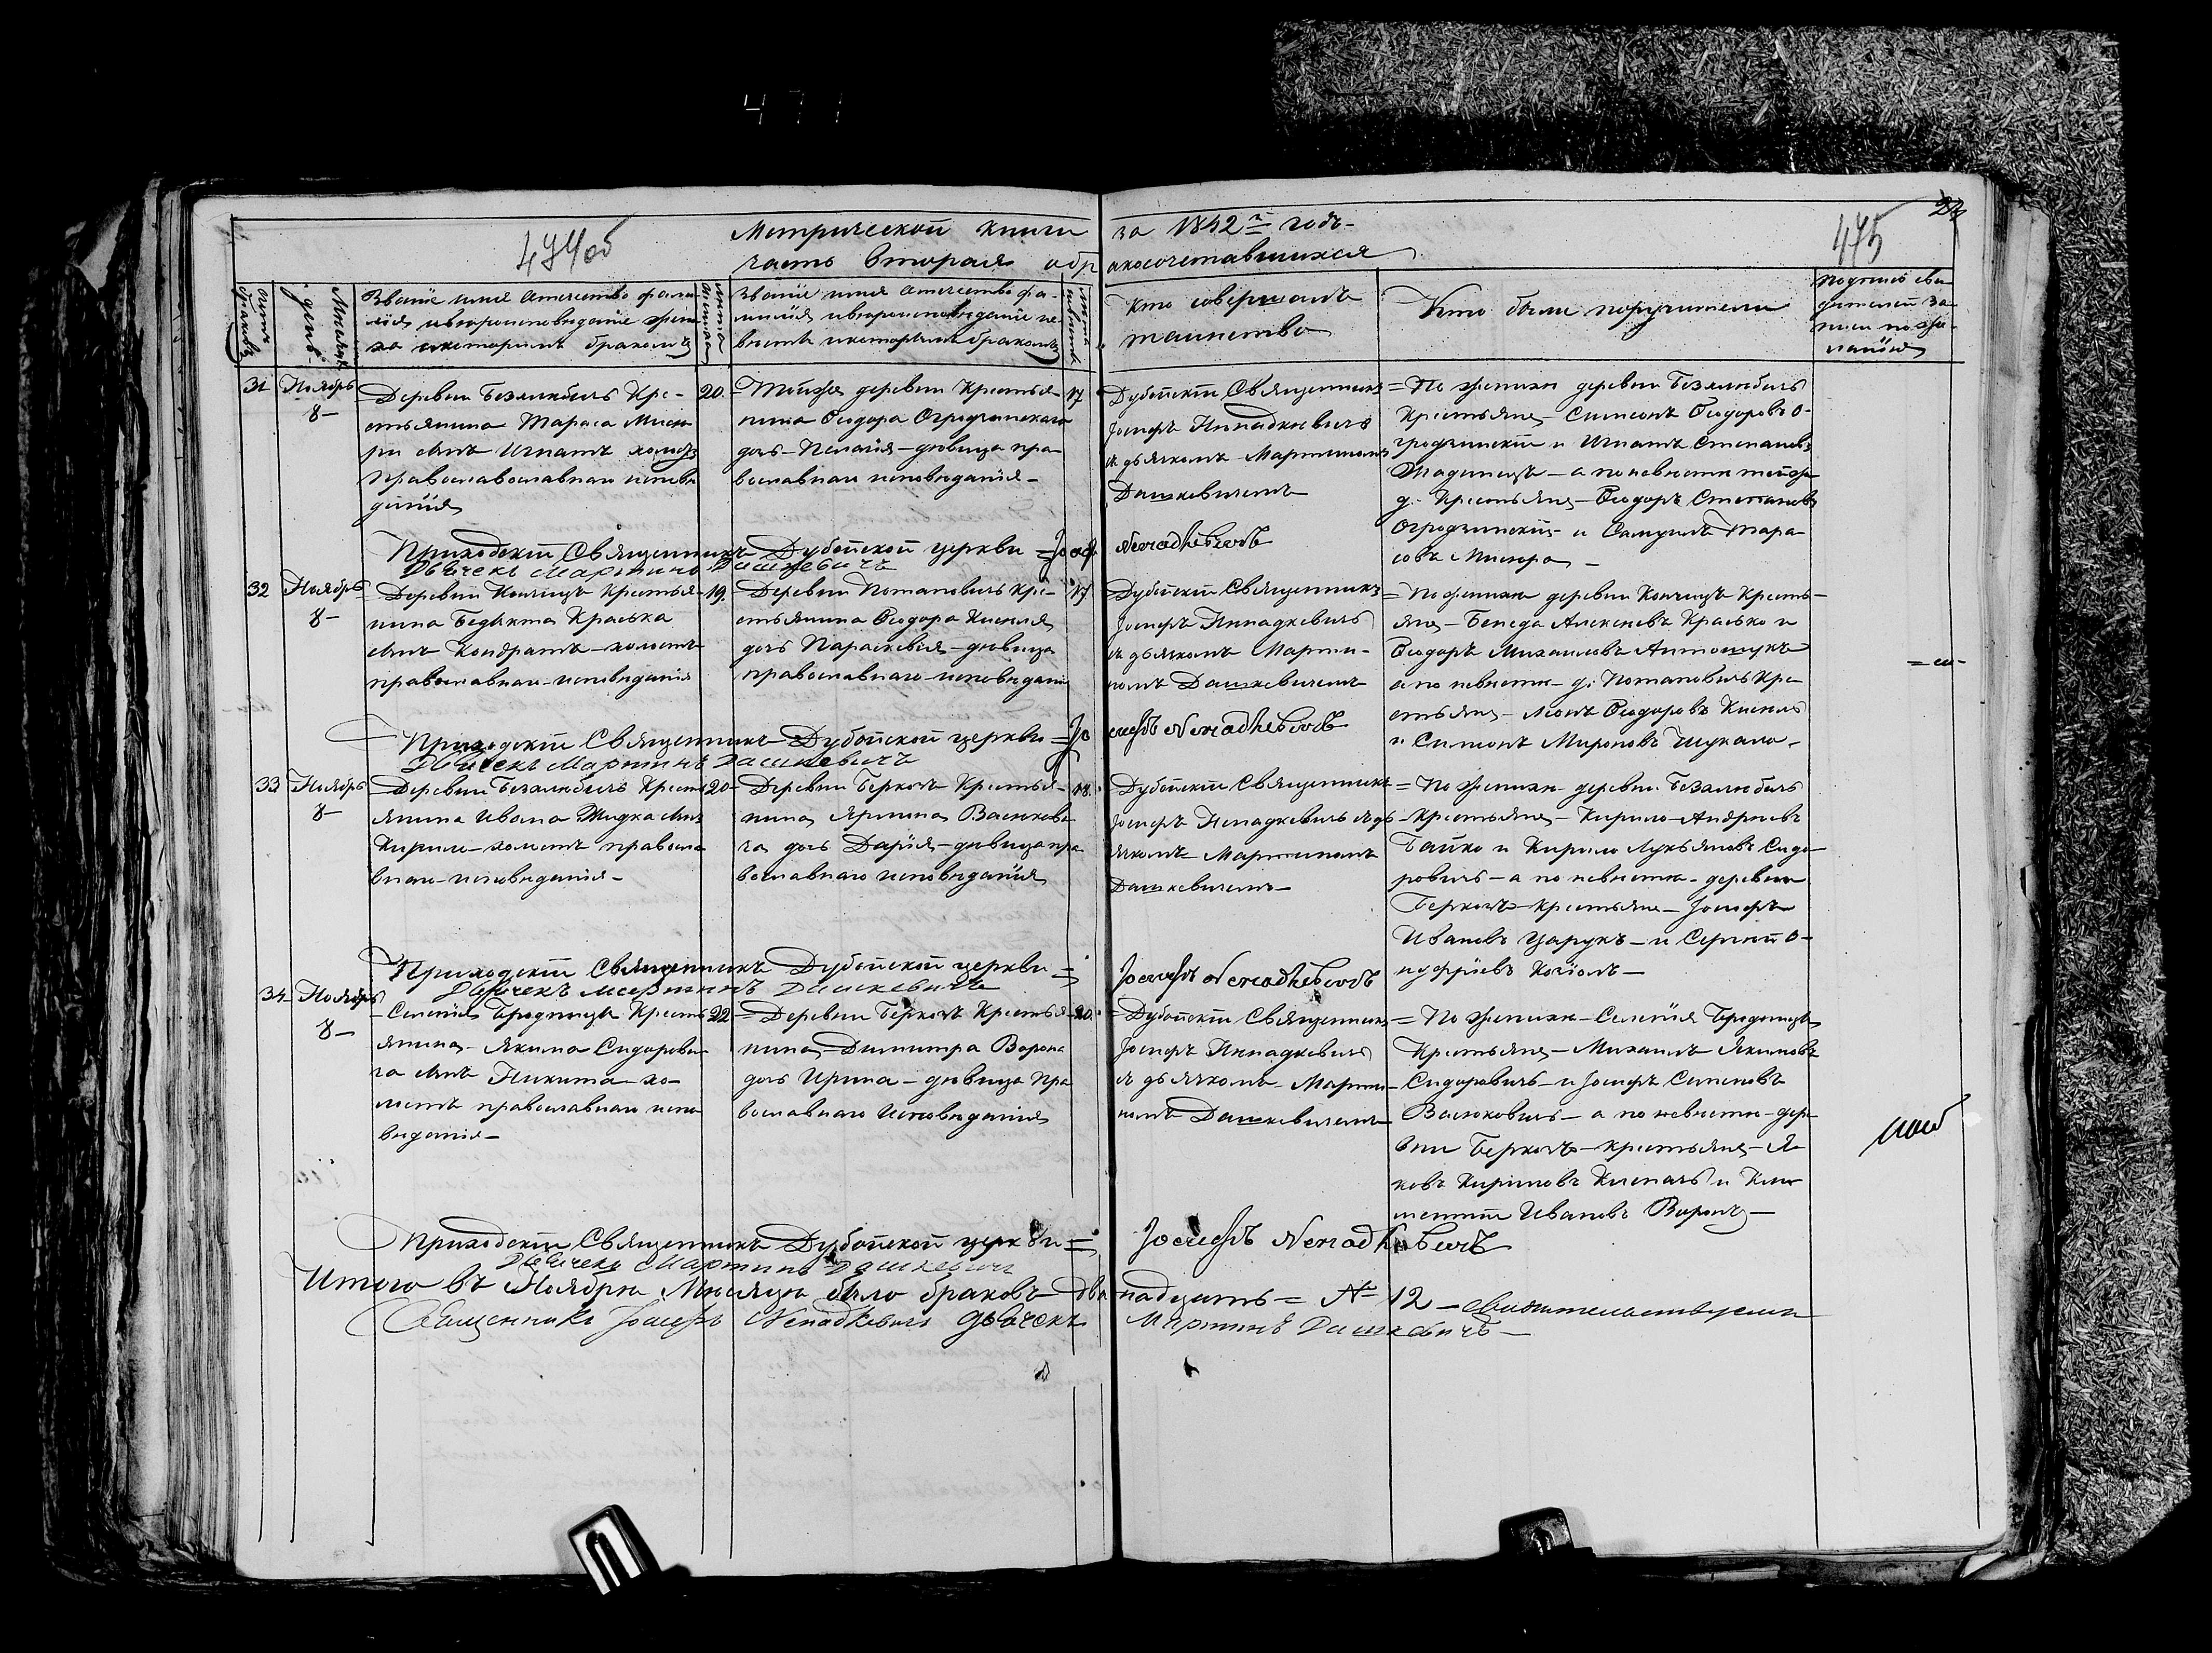 471
474об
475
Метрической книги за 1842 годъ
часть вторая о бракосочетавшихся
счетъ браковъ
Мѣсяцъ день
Званіе имя отечество фами-
лія и вѣроисповѣданіе жени-
ха и которымъ бракомъ
лѣта жениха
Званіе имя отечество фа-
милія и вѣроисповѣданіе не-
вѣсты и которымъ бракомъ
лѣта невѣсты
Кто совершалъ
таинство
Кто были поручители
Подпись сви-
дителей за-
писи по же-
ланію
31
Ноябрь
8
Деревни Беззлюбичь Кре-
стьянина Тараса
сынъ Игнатъ холостъ
православнаго исповѣ
данія
20.
Тойже деревни Крестья-
нина Ѳеодора Огродзинскаго
дочь Пелагія дѣвица пра-
вославнаго исповѣданія
17
Дубойскій Священникъ
Іосифъ Ненадкевичь
съ дьячкомъ Мартиномъ
Дашкевичемъ
По женихѣ деревни Беззлюбичь
Крестьяне Симеонъ Ѳеодоровъ О-
гродзинскій и Игнатъ Степановъ
а по невѣстѣ тойже
д. Крестьяне Ѳеодоръ Степановъ
Огродзинскій и Самуилъ Тара-
совъ
Приходскій Священникъ Дубойской церкви Іосифъ Ненадкевичъ
Дьячекъ Мартинъ Дашкевичъ
32
Ноябрь
8
Деревни Кончицъ Крестья-
нина Бенедыкта Краська
сынъ Кондратъ холостъ
православнаго исповѣданія
19.
Деревни Потаповичь Кре-
стьянина Ѳеодора Киселя
дочь Параскевія дѣвица
православнаго исповѣданія
17
Дубойскій Священникъ
Іосифъ Ненадкевичь
съ дьячкомъ Марти-
номъ Дашкевичемъ
По женихѣ деревни Кончицъ Кресть-
яне Бенеда Алексеевъ Красько и
Ѳеодоръ Михаиловъ Антошукъ
а по невѣстѣ д. Потаповичь Кре-
стьяне Леонъ Ѳеодоровъ Кисель
и Симеонъ Мироновъ Шукало
Приходскій Священникъ Дубойской церкви Іосифъ Ненадкевичъ
Дьячекъ Мартинъ Дашкевичъ
33
Ноябрь
8
Деревни Беззлюбичь Кресть
янина Ивана Жидка сынъ
Кирило холостъ правосла
внаго исповѣданія
20
Деревни Беркоч Крестья-
нина Ярмина Васюкови
ча дочь Дарія дѣвица пра
вославнаго исповѣданія
18.
Дубойскій Священникъ
Іосифъ Ненадкевичь съ дь
ячкомъ Мартиномъ
Дашкевичемъ
По женихѣ деревни Беззлюбичь
Крестьяне Кирило Андреевъ
Байко и Кирило Лукьяновъ Сидо-
ровичь а по невѣстѣ деревни
Беркоч крестьяне Іосифъ
Ивановъ Царукъ и Сергий О-
нуфріевъ
Приходскій Священникъ Дубойской церкви Іосифъ Ненадкевичъ
Дьячекъ Мартинъ Дашкевичъ
34
Ноябрь
8
Селенія Бродницы Кресть
янина Якима Сидорови
ча сынъ Никита хо-
лостъ православнаго испо
вѣданія
22
Деревни Беркоч Крестья-
нина Димитра Ворона
дочь Ирина дѣвица пра
вославнаго исповѣданія
20.
Дубойскій Священникъ
Іосифъ Ненадкевичь
съ дьячкомъ Марти-
номъ Дашкевичемъ
По женихѣ Селенія Бродницы
Крестьяне Михаилъ Якимовъ
Сидоровичь и Іосифъ Семеновъ
Васюковичь а по невѣстѣ дере
вни Беркоч крестьяне Я-
ковъ Кириловъ и Кли
ментій Ивановъ Воронъ
Приходскій Священникъ Дубойской церкви Іосифъ Ненадкевичъ
Дьячекъ Мартинъ Дашкевичъ
Итого въ Ноябрѣ Мѣсяцѣ было браковъ двѣнадцать № 12 свидѣтельствуемъ
Священникъ Іосифъ Ненадкевичъ дьячекъ Мартинъ Дашкевичъ